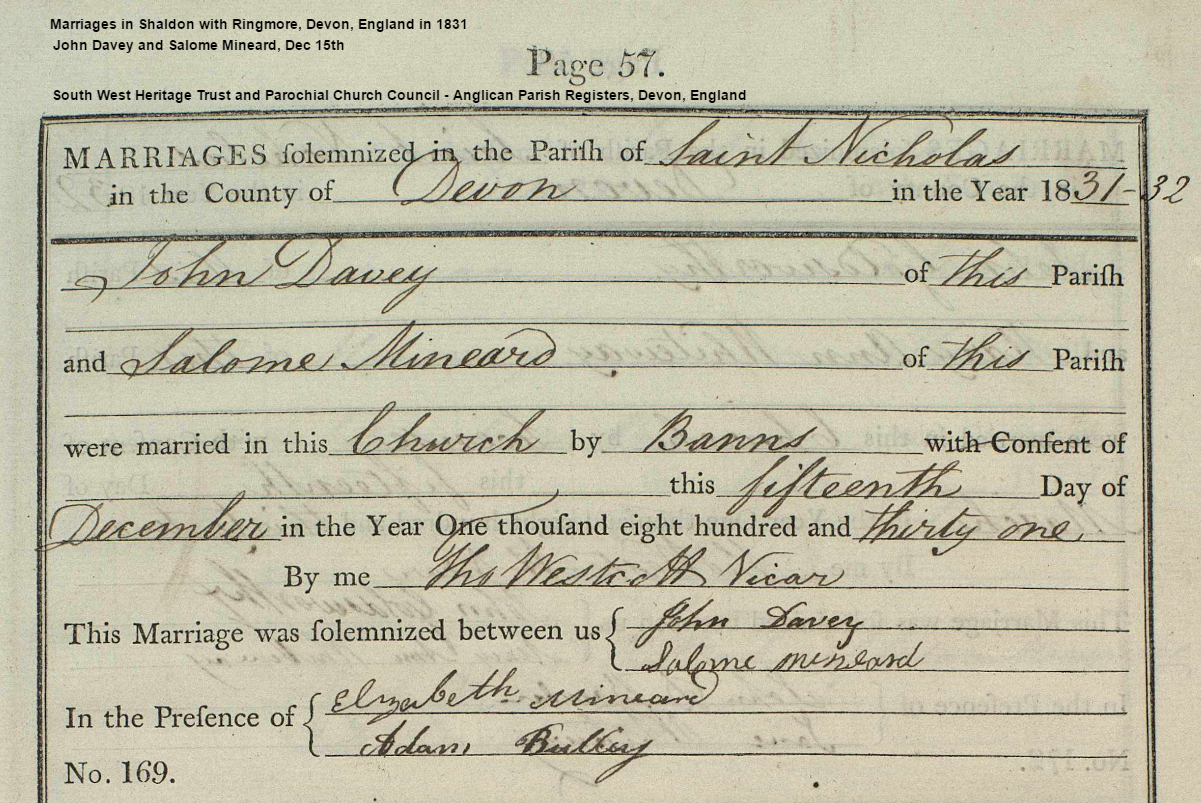 Marriages in Shaldon with Ringmore, Devon, England in 1831
John Davey and Salome Mineard, Dec 15th
Page 57.
South West Heritage Trust and Parochial Church Council - Anglican Parish Registers, Devon, England
MARRIAGES ſolemnized in the Pariſh of Saint Nicholas
in the County of Devon in the Year 1831-32
John Davey of this Pariſh
and Salome Mineard of this Pariſh
were married in this Church by Banns with Conſent of
this fifteenth Day of
December in the Year One thouſand eight hundred and thirty one
By me Tho Westcott Vicar
This Marriage was ſolemnized between us John Davey
Salome mineard
In the Preſence of Elizabeth Mineard
Adam
No. 169.